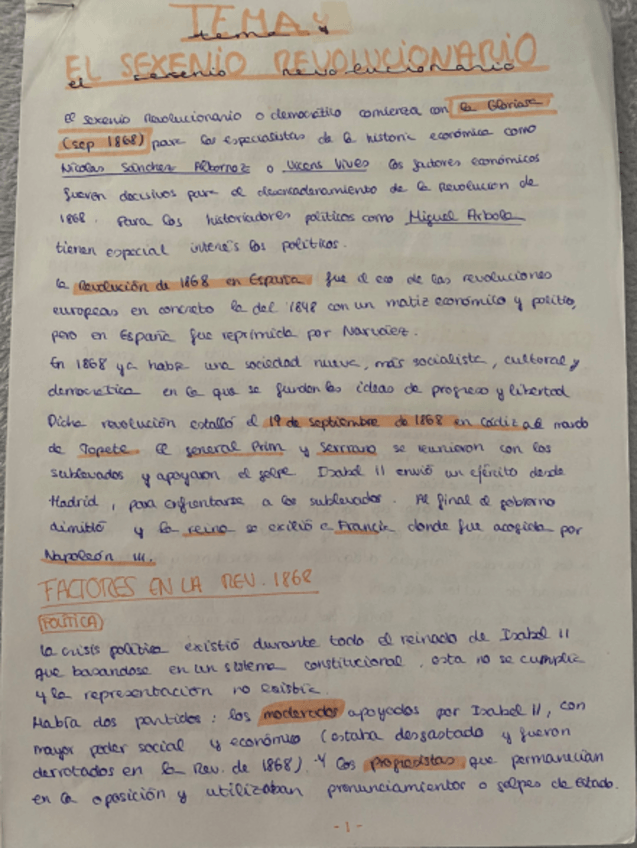 TEMA 4
tema 4
EL SEXENIO REVOLUCIONARIO
el sexenio revolucionario
El sexenio Revolucionario o democrático comienza con la Gloriosa
(sep 1868) para los especialistas de la historia económica como
Nicolas Sánchez Albornoz o Vicens Vives los factores económicos
fueron decisivos para el desencadenamiento de la Revolucion de
1868. Para los historiadores políticos como Miguel Artola
tienen especial interés los políticos.
La Revolución de 1868 en España fue el eco de las revoluciones
europeas en concreto la del 1848 con un matiz económico y político,
pero en España fue reprimida por Narváez.
En 1868 ya había una sociedad nueva, más socialista, cultural y
democrática en la que se fundan las ideas de progreso y libertad
Dicha revolución estalló el 19 de septiembre de 1868 en Cádiz al mando
de Topete. El general Prim y Serrano se reunieron con los
sublevados y apoyaron el golpe Isabel II envió un ejército desde
Madrid, para enfrentarse a los sublevados. Al final el gobierno
dimitió y la reina se exilió a Francia donde fue acogida por
Napoleón III.
FACTORES EN LA REV. 1868
POLÍTICA
La crisis política existió durante todo el reinado de Isabel II
que basandose en un sistema constitucional, esta no se cumplía
y la representación no existía.
Había dos partidos: los moderados apoyados por Isabel II, con
mayor poder social y económico (estaba desgastado y fueron
derrotados en la Rev. de 1868). Y los progresistas que permanecían
en la oposición y utilizaban pronunciamientos o golpes de Estado.
-1-